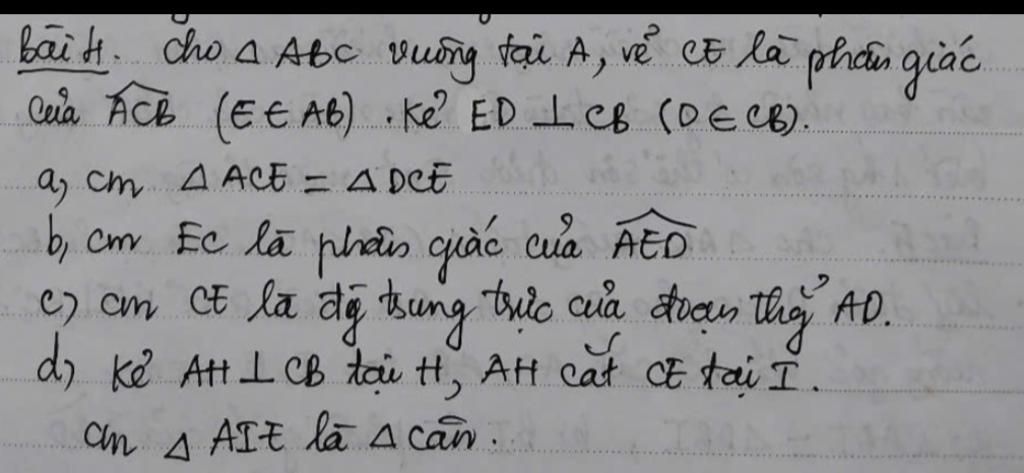 Bài 4. Cho △ ABC vuông tại A, vẽ CE là phân giác
của ACB (E ∈ AB). Kẻ ED ⊥ CB (D ∈ CB).
a, cm △ ACE = △ DCE
b, cm EC là phân giác của AED
c) cm CE là đg trung trực của đoạn thg̉ AD.
d) Kẻ AH ⊥ CB tại H, AH cắt CE tại I.
cm △ AIE là △ cân.